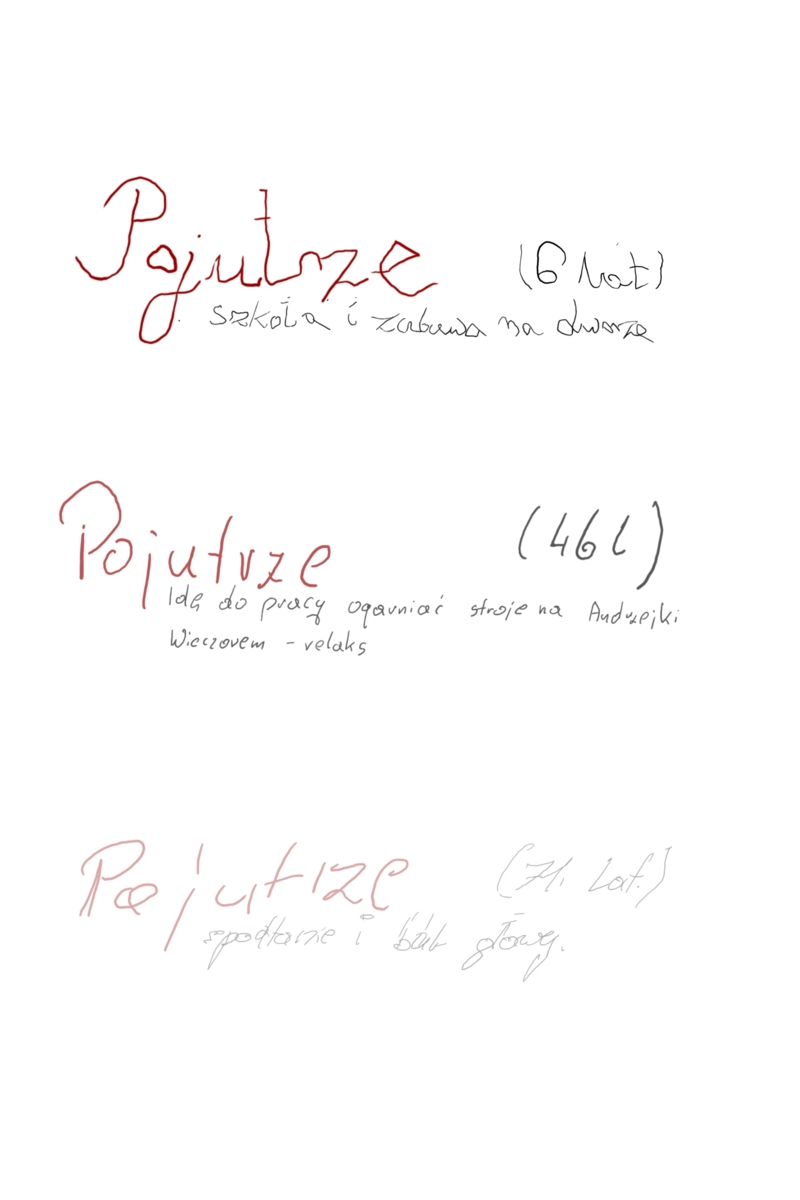 Pojutrze (6 lat)
szkoła i zabawa na dworze
Pojutrze (46 l)
Idę do pracy ogarniać stroje na Andrzejki
Wieczorem - relaks
Pojutrze (71. lat.)
spotkanie i ból głowy.